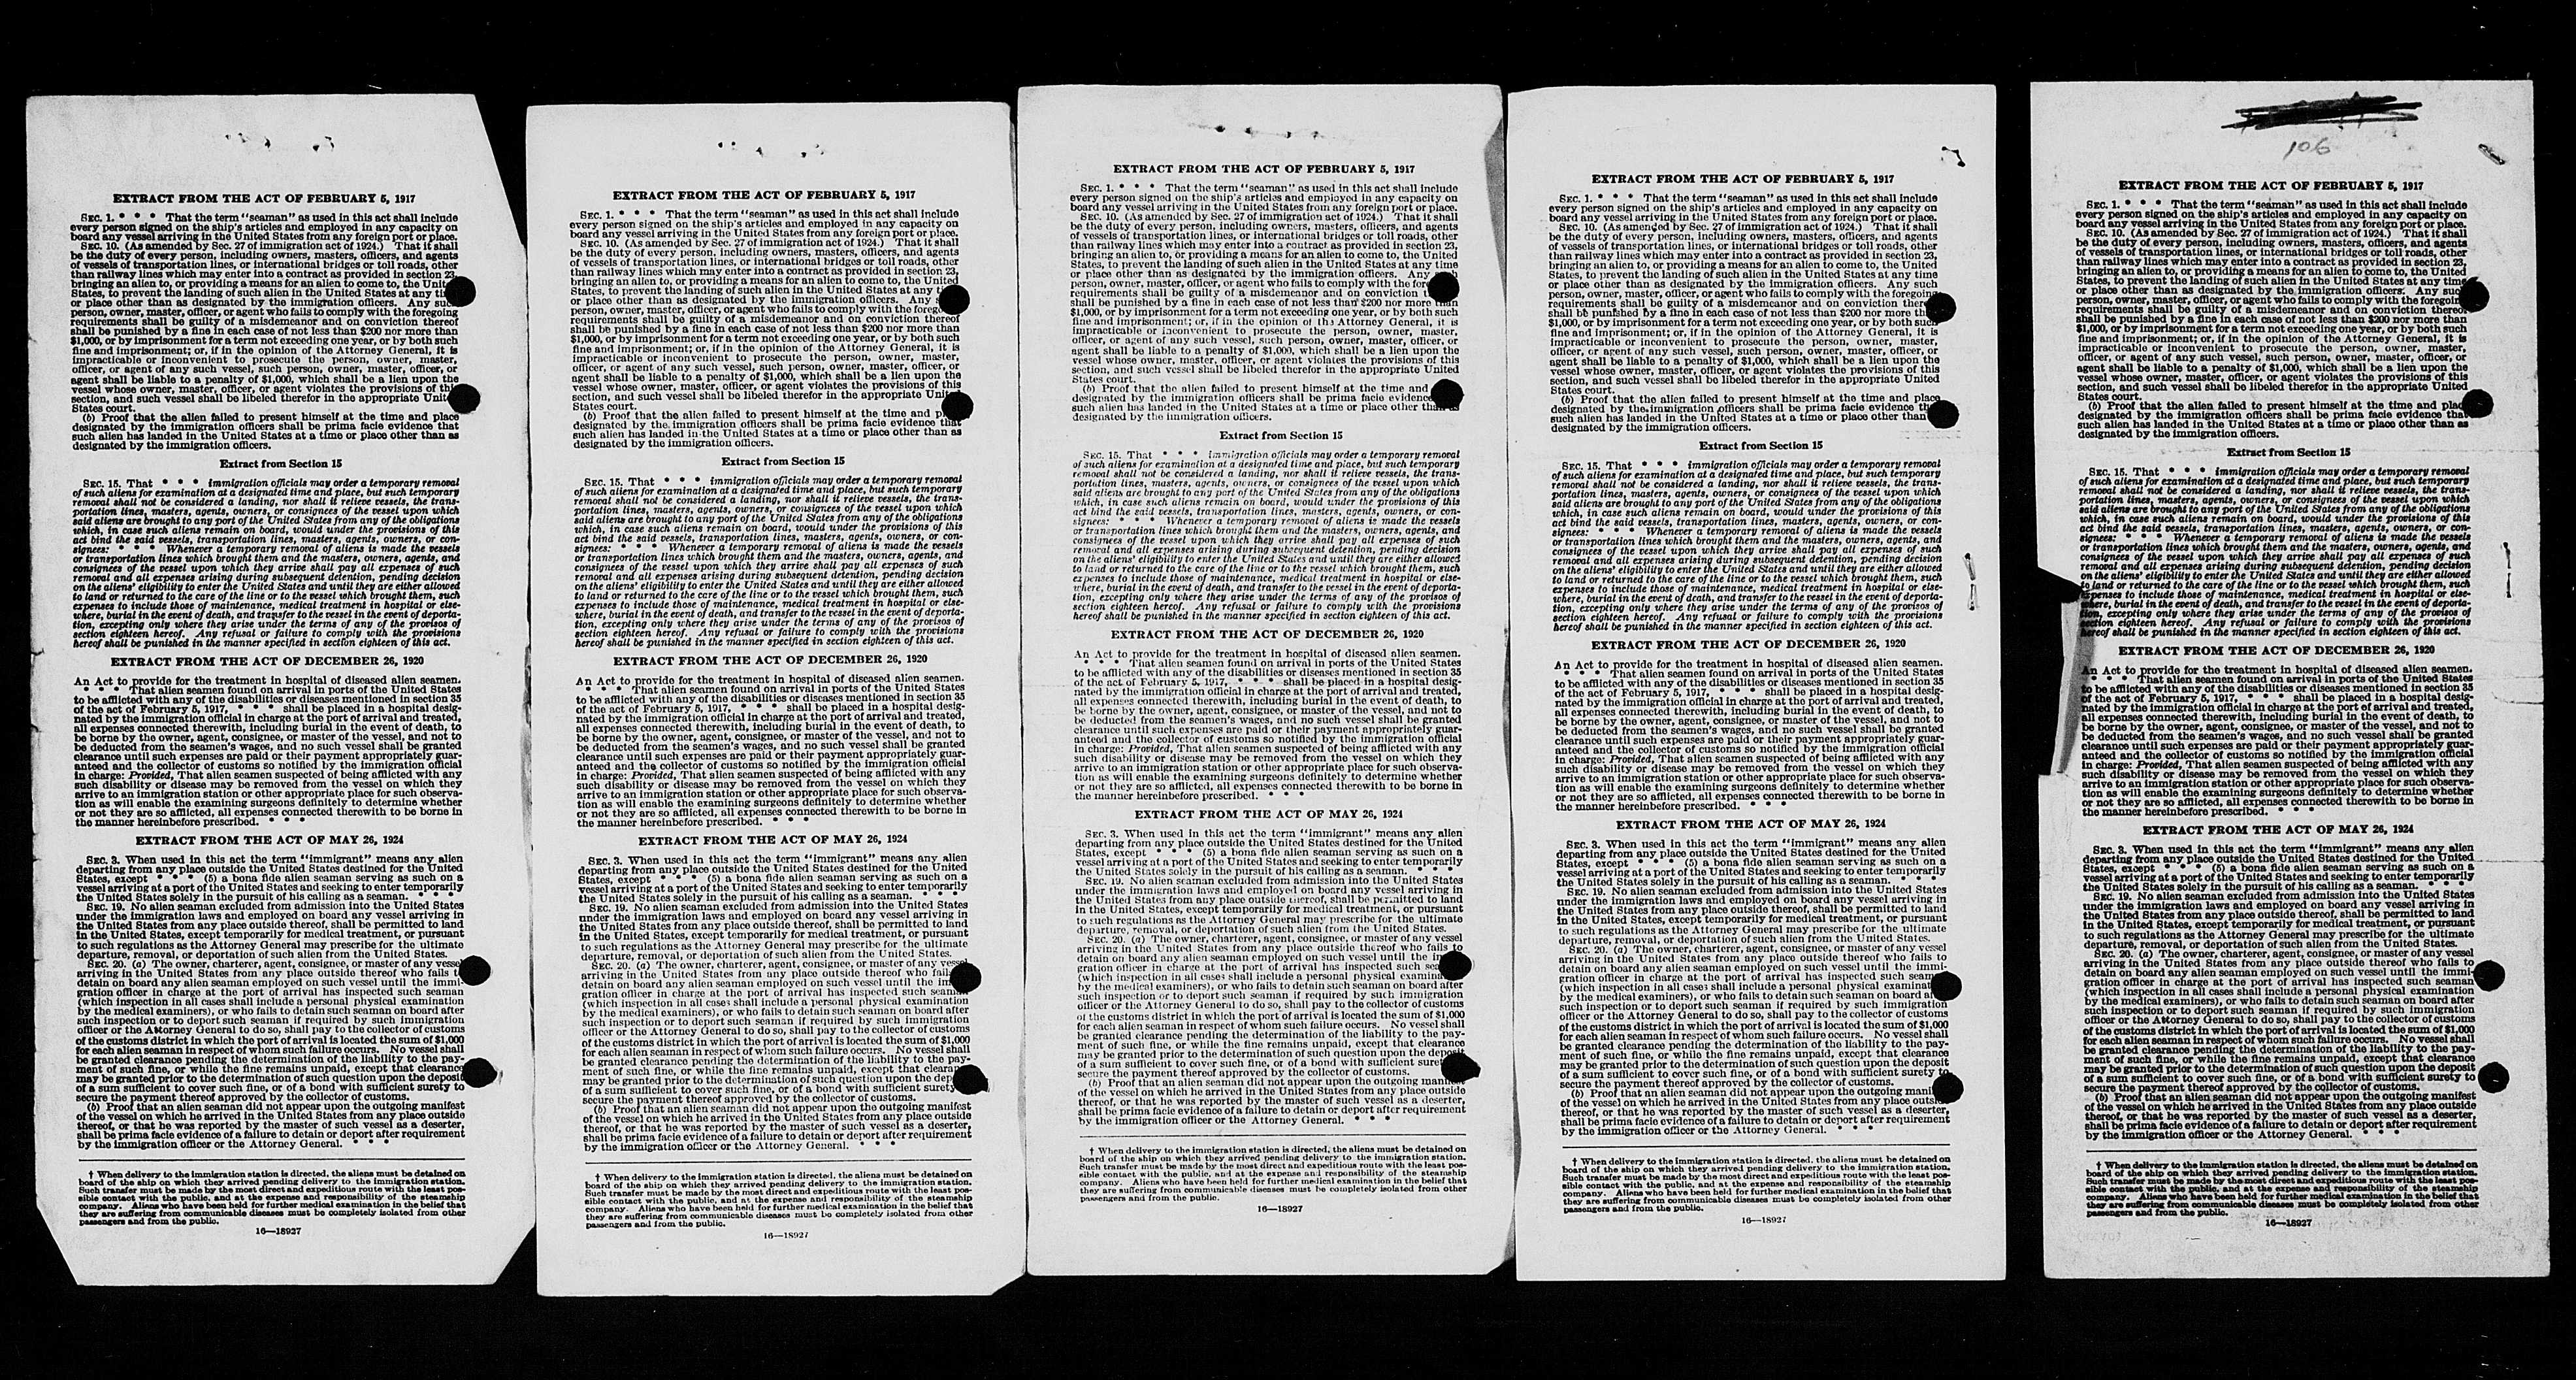 EXTRACT FROM THE ACT OF FEBRUARY 5, 1917
SEC. 1. * * * That the term "seaman" as used in this act shall include
every person signed on the ship's articles and employed in any capacity on
board any vessel arriving in the United States from any foreign port or place.
SEC. 10. (As amended by Sec. 27 of immigration act of 1924.) That it shall
be the duty of every person, including owners, masters, officers, and agents
of vessels of transportation lines, or international bridges or toll roads, other
than railway lines which may enter into a contract as provided in section 23,
bringing an alien to, or providing a means for an alien to come to, the
States, to prevent the landing of such alien in the United States at any
or place other than as designated by the immigration officers. Any
person, owner, master, officer, or agent who fails to comply with the foregoing
requirements shall be guilty of a misdemeanor and on conviction thereof
shall be punished by a fine in each case of not less than $200 nor more than
$1,000, or by imprisonment for a term not exceeding one year, or by both such
fine and imprisonment; or, if in the opinion of the Attorney General, it is
impracticable or inconvenient to prosecute the person, owner, master,
officer, or agent of any such vessel, such person, owner, master, officer, or
agent shall be liable to a penalty of $1,000, which shall be a lien upon the
vessel whose owner, master, officer, or agent violates the provisions of
section, and such vessel shall be libeled therefor in the appropriate
States court.
(b) Proof that the alien failed to present himself at the time and place
designated by the immigration officers shall be prima facie evidence that
such alien has landed in the United States at a time or place other than as
designated by the immigration officers.
Extract from Section 15
SEC. 15. That * * * immigration officials may order a temporary removal
of such aliens for examination at a designated time and place, but such temporary
removal shall not be considered a landing, nor shall it relieve vessels, the trans-
portation lines, masters, agents, owners, or consignees of the vessel upon which
said aliens are brought to any port of the United States from any of the obligations
which, in case such aliens remain on board, would under the provisions of this
act bind the said vessels, transportation lines, masters, agents, owners, or con-
signees: * * * Whenever a temporary removal of aliens is made the vessels
or transportation lines which brought them and the masters, owners, agents, and
consignees of the vessel upon which they arrive shall pay all expenses of such
removal and all expenses arising during subsequent detention, pending decision
on the aliens' eligibility to enter the United States and until they are either allowed
to land or returned to the care of the line or to the vessel which brought them, such
expenses to include those of maintenance, medical treatment in hospital or else-
where, burial in the event of death, and transfer to the vessel in the event of deporta-
tion, excepting only where they arise under the terms of any of the provisos of
section eighteen hereof. Any refusal or failure to comply with the provisions
hereof shall be punished in the manner specified in section eighteen of this act.
EXTRACT FROM THE ACT OF DECEMBER 26, 1920
An Act to provide for the treatment in hospital of diseased alien seamen.
* * * That alien seamen found on arrival in ports of the United States
to be afflicted with any of the disabilities or diseases mentioned in section 35
of the act of February 5, 1917, * * * shall be placed in a hospital desig-
nated by the immigration official in charge at the port of arrival and treated,
all expenses connected therewith, including burial in the event of death, to
be borne by the owner, agent, consignee, or master of the vessel, and not to
be deducted from the seamen's wages, and no such vessel shall be granted
clearance until such expenses are paid or their payment appropriately guar-
anteed and the collector of customs so notified by the immigration official
in charge: Provided, That alien seamen suspected of being afflicted with any
such disability or disease may be removed from the vessel on which they
arrive to an immigration station or other appropriate place for such observa-
tion as will enable the examining surgeons definitely to determine whether
or not they are so afflicted, all expenses connected therewith to be borne in
the manner hereinbefore prescribed. * * *
EXTRACT FROM THE ACT OF MAY 26, 1924
SEC. 3. When used in this act the term "immigrant" means any alien
departing from any place outside the United States destined for the United
States, except * * * (5) a bona fide alien seaman serving as such on a
vessel arriving at a port of the United States and seeking to enter temporarily
the United States solely in the pursuit of his calling as a seaman. * * *
SEC. 19. No alien seaman excluded from admission into the United States
under the immigration laws and employed on board any vessel arriving in
the United States from any place outside thereof, shall be permitted to land
in the United States, except temporarily for medical treatment, or pursuant
to such regulations as the Attorney General may prescribe for the ultimate
departure, removal, or deportation of such alien from the United States.
SEC. 20. (a) The owner, charterer, agent, consignee, or master of any vessel
arriving in the United States from any place outside thereof who fails
detain on board any alien seaman employed on such vessel until the immi-
gration officer in charge at the port of arrival has inspected such seaman
(which inspection in all cases shall include a personal physical examination
by the medical examiners), or who fails to detain such seaman on board after
such inspection or to deport such seaman if required by such immigration
officer or the Attorney General to do so, shall pay to the collector of customs
of the customs district in which the port of arrival is located the sum of $1,000
for each alien seaman in respect of whom such failure occurs. No vessel shall
be granted clearance pending the determination of the liability to the pay-
ment of such fine, or while the fine remains unpaid, except that clearance
may be granted prior to the determination of such question upon the deposit
of a sum sufficient to cover such fine, or of a bond with sufficient surety to
secure the payment thereof approved by the collector of customs.
(b) Proof that an alien seaman did not appear upon the outgoing manifest
of the vessel on which he arrived in the United States from any place outside
thereof, or that he was reported by the master of such vessel as a deserter,
shall be prima facie evidence of a failure to detain or deport after requirement
by the immigration officer or the Attorney General. * * *
† When delivery to the immigration station is directed, the aliens must be detained on
board of the ship on which they arrived pending delivery to the immigration station.
Such transfer must be made by the most direct and expeditious route with the least pos-
sible contact with the public, and at the expense and responsibility of the steamship
company. Aliens who have been held for further medical examination in the belief that
they are suffering from communicable diseases must be completely isolated from other
passengers and from the public.
16—18927
EXTRACT FROM THE ACT OF FEBRUARY 5, 1917
SEC. 1. * * * That the term "seaman" as used in this act shall include
every person signed on the ship's articles and employed in any capacity on
board any vessel arriving in the United States from any foreign port or place.
SEC. 10. (As amended by Sec. 27 of immigration act of 1924.) That it shall
be the duty of every person, including owners, masters, officers, and agents
of vessels of transportation lines, or international bridges or toll roads, other
than railway lines which may enter into a contract as provided in section 23,
bringing an alien to, or providing a means for an alien to come to, the United
States, to prevent the landing of such alien in the United States at any
or place other than as designated by the immigration officers. Any
person, owner, master, officer, or agent who fails to comply with the
requirements shall be guilty of a misdemeanor and on conviction thereof
shall be punished by a fine in each case of not less than $200 nor more than
$1,000, or by imprisonment for a term not exceeding one year, or by both such
fine and imprisonment; or, if in the opinion of the Attorney General, it is
impracticable or inconvenient to prosecute the person, owner, master,
officer, or agent of any such vessel, such person, owner, master, officer, or
agent shall be liable to a penalty of $1,000, which shall be a lien upon the
vessel whose owner, master, officer, or agent violates the provisions of this
section, and such vessel shall be libeled therefor in the appropriate
States court.
(b) Proof that the alien failed to present himself at the time and
designated by the immigration officers shall be prima facie evidence that
such alien has landed in the United States at a time or place other than as
designated by the immigration officers.
Extract from Section 15
SEC. 15. That * * * immigration officials may order a temporary removal
of such aliens for examination at a designated time and place, but such temporary
removal shall not be considered a landing, nor shall it relieve vessels, the trans-
portation lines, masters, agents, owners, or consignees of the vessel upon which
said aliens are brought to any port of the United States from any of the obligations
which, in case such aliens remain on board, would under the provisions of this
act bind the said vessels, transportation lines, masters, agents, owners, or con-
signees: * * * Whenever a temporary removal of aliens is made the vessels
or transportation lines which brought them and the masters, owners, agents, and
consignees of the vessel upon which they arrive shall pay all expenses of such
removal and all expenses arising during subsequent detention, pending decision
on the aliens' eligibility to enter the United States and until they are either allowed
to land or returned to the care of the line or to the vessel which brought them, such
expenses to include those of maintenance, medical treatment in hospital or else-
where, burial in the event of death, and transfer to the vessel in the event of deporta-
tion, excepting only where they arise under the terms of any of the provisos of
section eighteen hereof. Any refusal or failure to comply with the provisions
hereof shall be punished in the manner specified in section eighteen of this act.
EXTRACT FROM THE ACT OF DECEMBER 26, 1920
An Act to provide for the treatment in hospital of diseased alien seamen.
* * * That alien seamen found on arrival in ports of the United States
to be afflicted with any of the disabilities or diseases mentioned in section 35
of the act of February 5, 1917, * * * shall be placed in a hospital desig-
nated by the immigration official in charge at the port of arrival and treated,
all expenses connected therewith, including burial in the event of death, to
be borne by the owner, agent, consignee, or master of the vessel, and not to
be deducted from the seamen's wages, and no such vessel shall be granted
clearance until such expenses are paid or their payment appropriately guar-
anteed and the collector of customs so notified by the immigration official
in charge: Provided, That alien seamen suspected of being afflicted with any
such disability or disease may be removed from the vessel on which they
arrive to an immigration station or other appropriate place for such observa-
tion as will enable the examining surgeons definitely to determine whether
or not they are so afflicted, all expenses connected therewith to be borne in
the manner hereinbefore prescribed. * * *
EXTRACT FROM THE ACT OF MAY 26, 1924
SEC. 3. When used in this act the term "immigrant" means any alien
departing from any place outside the United States destined for the United
States, except * * * (5) a bona fide alien seaman serving as such on a
vessel arriving at a port of the United States and seeking to enter temporarily
the United States solely in the pursuit of his calling as a seaman. * * *
SEC. 19. No alien seaman excluded from admission into the United States
under the immigration laws and employed on board any vessel arriving in
the United States from any place outside thereof, shall be permitted to land
in the United States, except temporarily for medical treatment, or pursuant
to such regulations as the Attorney General may prescribe for the ultimate
departure, removal, or deportation of such alien from the United States.
SEC. 20. (a) The owner, charterer, agent, consignee, or master of any vessel
arriving in the United States from any place outside thereof who fails
detain on board any alien seaman employed on such vessel until the
gration officer in charge at the port of arrival has inspected such seaman
(which inspection in all cases shall include a personal physical examination
by the medical examiners), or who fails to detain such seaman on board after
such inspection or to deport such seaman if required by such immigration
officer or the Attorney General to do so, shall pay to the collector of customs
of the customs district in which the port of arrival is located the sum of $1,000
for each alien seaman in respect of whom such failure occurs. No vessel shall
be granted clearance pending the determination of the liability to the pay-
ment of such fine, or while the fine remains unpaid, except that
may be granted prior to the determination of such question upon the
of a sum sufficient to cover such fine, or of a bond with sufficient surety
secure the payment thereof approved by the collector of customs.
(b) Proof that an alien seaman did not appear upon the outgoing manifest
of the vessel on which he arrived in the United States from any place outside
thereof, or that he was reported by the master of such vessel as a deserter,
shall be prima facie evidence of a failure to detain or deport after requirement
by the immigration officer or the Attorney General. * * *
† When delivery to the immigration station is directed, the aliens must be detained on
board of the ship on which they arrived pending delivery to the immigration station.
Such transfer must be made by the most direct and expeditious route with the least pos-
sible contact with the public, and at the expense and responsibility of the steamship
company. Aliens who have been held for further medical examination in the belief that
they are suffering from communicable diseases must be completely isolated from other
passengers and from the public.
16—18927
EXTRACT FROM THE ACT OF FEBRUARY 5, 1917
SEC. 1. * * * That the term "seaman" as used in this act shall include
every person signed on the ship's articles and employed in any capacity on
board any vessel arriving in the United States from any foreign port or place.
SEC. 10. (As amended by Sec. 27 of immigration act of 1924.) That it shall
be the duty of every person, including owners, masters, officers, and agents
of vessels of transportation lines, or international bridges or toll roads, other
than railway lines which may enter into a contract as provided in section 23,
bringing an alien to, or providing a means for an alien to come to, the United
States, to prevent the landing of such alien in the United States at any time
or place other than as designated by the immigration officers. Any
person, owner, master, officer, or agent who fails to comply with the
requirements shall be guilty of a misdemeanor and on conviction
shall be punished by a fine in each case of not less than $200 nor more than
$1,000, or by imprisonment for a term not exceeding one year, or by both such
fine and imprisonment; or, if in the opinion of the Attorney General, it is
impracticable or inconvenient to prosecute the person, owner, master,
officer, or agent of any such vessel, such person, owner, master, officer, or
agent shall be liable to a penalty of $1,000, which shall be a lien upon the
vessel whose owner, master, officer, or agent violates the provisions of this
section, and such vessel shall be libeled therefor in the appropriate United
States court.
(b) Proof that the alien failed to present himself at the time and
designated by the immigration officers shall be prima facie evidence
such alien has landed in the United States at a time or place other than as
designated by the immigration officers.
Extract from Section 15
SEC. 15. That * * * immigration officials may order a temporary removal
of such aliens for examination at a designated time and place, but such temporary
removal shall not be considered a landing, nor shall it relieve vessels, the trans-
portation lines, masters, agents, owners, or consignees of the vessel upon which
said aliens are brought to any port of the United States from any of the obligations
which, in case such aliens remain on board, would under the provisions of this
act bind the said vessels, transportation lines, masters, agents, owners, or con-
signees: * * * Whenever a temporary removal of aliens is made the vessels
or transportation lines which brought them and the masters, owners, agents, and
consignees of the vessel upon which they arrive shall pay all expenses of such
removal and all expenses arising during subsequent detention, pending decision
on the aliens' eligibility to enter the United States and until they are either allowed
to land or returned to the care of the line or to the vessel which brought them, such
expenses to include those of maintenance, medical treatment in hospital or else-
where, burial in the event of death, and transfer to the vessel in the event of deporta-
tion, excepting only where they arise under the terms of any of the provisos of
section eighteen hereof. Any refusal or failure to comply with the provisions
hereof shall be punished in the manner specified in section eighteen of this act.
EXTRACT FROM THE ACT OF DECEMBER 26, 1920
An Act to provide for the treatment in hospital of diseased alien seamen.
* * * That alien seamen found on arrival in ports of the United States
to be afflicted with any of the disabilities or diseases mentioned in section 35
of the act of February 5, 1917, * * * shall be placed in a hospital desig-
nated by the immigration official in charge at the port of arrival and treated,
all expenses connected therewith, including burial in the event of death, to
be borne by the owner, agent, consignee, or master of the vessel, and not to
be deducted from the seamen's wages, and no such vessel shall be granted
clearance until such expenses are paid or their payment appropriately guar-
anteed and the collector of customs so notified by the immigration official
in charge: Provided, That alien seamen suspected of being afflicted with any
such disability or disease may be removed from the vessel on which they
arrive to an immigration station or other appropriate place for such observa-
tion as will enable the examining surgeons definitely to determine whether
or not they are so afflicted, all expenses connected therewith to be borne in
the manner hereinbefore prescribed. * * *
EXTRACT FROM THE ACT OF MAY 26, 1924
SEC. 3. When used in this act the term "immigrant" means any alien
departing from any place outside the United States destined for the United
States, except * * * (5) a bona fide alien seaman serving as such on a
vessel arriving at a port of the United States and seeking to enter temporarily
the United States solely in the pursuit of his calling as a seaman. * * *
SEC. 19. No alien seaman excluded from admission into the United States
under the immigration laws and employed on board any vessel arriving in
the United States from any place outside thereof, shall be permitted to land
in the United States, except temporarily for medical treatment, or pursuant
to such regulations as the Attorney General may prescribe for the ultimate
departure, removal, or deportation of such alien from the United States.
SEC. 20. (a) The owner, charterer, agent, consignee, or master of any vessel
arriving in the United States from any place outside thereof who fails to
detain on board any alien seaman employed on such vessel until the
gration officer in charge at the port of arrival has inspected such
(which inspection in all cases shall include a personal physical examination
by the medical examiners), or who fails to detain such seaman on board after
such inspection or to deport such seaman if required by such immigration
officer or the Attorney General to do so, shall pay to the collector of customs
of the customs district in which the port of arrival is located the sum of $1,000
for each alien seaman in respect of whom such failure occurs. No vessel shall
be granted clearance pending the determination of the liability to the pay-
ment of such fine, or while the fine remains unpaid, except that clearance
may be granted prior to the determination of such question upon the deposit
of a sum sufficient to cover such fine, or of a bond with sufficient
secure the payment thereof approved by the collector of customs.
(b) Proof that an alien seaman did not appear upon the outgoing manifest
of the vessel on which he arrived in the United States from any place outside
thereof, or that he was reported by the master of such vessel as a deserter,
shall be prima facie evidence of a failure to detain or deport after requirement
by the immigration officer or the Attorney General. * * *
† When delivery to the immigration station is directed, the aliens must be detained on
board of the ship on which they arrived pending delivery to the immigration station.
Such transfer must be made by the most direct and expeditious route with the least pos-
sible contact with the public, and at the expense and responsibility of the steamship
company. Aliens who have been held for further medical examination in the belief that
they are suffering from communicable diseases must be completely isolated from other
passengers and from the public.
16—18927
EXTRACT FROM THE ACT OF FEBRUARY 5, 1917
SEC. 1. * * * That the term "seaman" as used in this act shall include
every person signed on the ship's articles and employed in any capacity on
board any vessel arriving in the United States from any foreign port or place.
SEC. 10. (As amended by Sec. 27 of immigration act of 1924.) That it shall
be the duty of every person, including owners, masters, officers, and agents
of vessels of transportation lines, or international bridges or toll roads, other
than railway lines which may enter into a contract as provided in section 23,
bringing an alien to, or providing a means for an alien to come to, the United
States, to prevent the landing of such alien in the United States at any time
or place other than as designated by the immigration officers. Any such
person, owner, master, officer, or agent who fails to comply with the foregoing
requirements shall be guilty of a misdemeanor and on conviction
shall be punished by a fine in each case of not less than $200 nor more
$1,000, or by imprisonment for a term not exceeding one year, or by both such
fine and imprisonment; or, if in the opinion of the Attorney General, it is
impracticable or inconvenient to prosecute the person, owner, master,
officer, or agent of any such vessel, such person, owner, master, officer, or
agent shall be liable to a penalty of $1,000, which shall be a lien upon the
vessel whose owner, master, officer, or agent violates the provisions of this
section, and such vessel shall be libeled therefor in the appropriate United
States court.
(b) Proof that the alien failed to present himself at the time and place
designated by the immigration officers shall be prima facie evidence
such alien has landed in the United States at a time or place other than
designated by the immigration officers.
Extract from Section 15
SEC. 15. That * * * immigration officials may order a temporary removal
of such aliens for examination at a designated time and place, but such temporary
removal shall not be considered a landing, nor shall it relieve vessels, the trans-
portation lines, masters, agents, owners, or consignees of the vessel upon which
said aliens are brought to any port of the United States from any of the obligations
which, in case such aliens remain on board, would under the provisions of this
act bind the said vessels, transportation lines, masters, agents, owners, or con-
signees: * * * Whenever a temporary removal of aliens is made the vessels
or transportation lines which brought them and the masters, owners, agents, and
consignees of the vessel upon which they arrive shall pay all expenses of such
removal and all expenses arising during subsequent detention, pending decision
on the aliens' eligibility to enter the United States and until they are either allowed
to land or returned to the care of the line or to the vessel which brought them, such
expenses to include those of maintenance, medical treatment in hospital or else-
where, burial in the event of death, and transfer to the vessel in the event of deporta-
tion, excepting only where they arise under the terms of any of the provisos of
section eighteen hereof. Any refusal or failure to comply with the provisions
hereof shall be punished in the manner specified in section eighteen of this act.
EXTRACT FROM THE ACT OF DECEMBER 26, 1920
An Act to provide for the treatment in hospital of diseased alien seamen.
* * * That alien seamen found on arrival in ports of the United States
to be afflicted with any of the disabilities or diseases mentioned in section 35
of the act of February 5, 1917, * * * shall be placed in a hospital desig-
nated by the immigration official in charge at the port of arrival and treated,
all expenses connected therewith, including burial in the event of death, to
be borne by the owner, agent, consignee, or master of the vessel, and not to
be deducted from the seamen's wages, and no such vessel shall be granted
clearance until such expenses are paid or their payment appropriately guar-
anteed and the collector of customs so notified by the immigration official
in charge: Provided, That alien seamen suspected of being afflicted with any
such disability or disease may be removed from the vessel on which they
arrive to an immigration station or other appropriate place for such observa-
tion as will enable the examining surgeons definitely to determine whether
or not they are so afflicted, all expenses connected therewith to be borne in
the manner hereinbefore prescribed. * * *
EXTRACT FROM THE ACT OF MAY 26, 1924
SEC. 3. When used in this act the term "immigrant" means any alien
departing from any place outside the United States destined for the United
States, except * * * (5) a bona fide alien seaman serving as such on a
vessel arriving at a port of the United States and seeking to enter temporarily
the United States solely in the pursuit of his calling as a seaman. * * *
SEC. 19. No alien seaman excluded from admission into the United States
under the immigration laws and employed on board any vessel arriving in
the United States from any place outside thereof, shall be permitted to land
in the United States, except temporarily for medical treatment, or pursuant
to such regulations as the Attorney General may prescribe for the ultimate
departure, removal, or deportation of such alien from the United States.
SEC. 20. (a) The owner, charterer, agent, consignee, or master of any vessel
arriving in the United States from any place outside thereof who fails to
detain on board any alien seaman employed on such vessel until the immi-
gration officer in charge at the port of arrival has inspected such
(which inspection in all cases shall include a personal physical
by the medical examiners), or who fails to detain such seaman on board
such inspection or to deport such seaman if required by such immigration
officer or the Attorney General to do so, shall pay to the collector of customs
of the customs district in which the port of arrival is located the sum of $1,000
for each alien seaman in respect of whom such failure occurs. No vessel shall
be granted clearance pending the determination of the liability to the pay-
ment of such fine, or while the fine remains unpaid, except that clearance
may be granted prior to the determination of such question upon the deposit
of a sum sufficient to cover such fine, or of a bond with sufficient surety to
secure the payment thereof approved by the collector of customs.
(b) Proof that an alien seaman did not appear upon the outgoing
of the vessel on which he arrived in the United States from any place outside
thereof, or that he was reported by the master of such vessel as a deserter,
shall be prima facie evidence of a failure to detain or deport after requirement
by the immigration officer or the Attorney General. * * *
† When delivery to the immigration station is directed, the aliens must be detained on
board of the ship on which they arrived pending delivery to the immigration station.
Such transfer must be made by the most direct and expeditious route with the least pos-
sible contact with the public, and at the expense and responsibility of the steamship
company. Aliens who have been held for further medical examination in the belief that
they are suffering from communicable diseases must be completely isolated from other
passengers and from the public.
16—18927
106
EXTRACT FROM THE ACT OF FEBRUARY 5, 1917
SEC. 1. * * * That the term "seaman" as used in this act shall include
every person signed on the ship's articles and employed in any capacity on
board any vessel arriving in the United States from any foreign port or place.
SEC. 10. (As amended by Sec. 27 of immigration act of 1924.) That it shall
be the duty of every person, including owners, masters, officers, and agents
of vessels of transportation lines, or international bridges or toll roads, other
than railway lines which may enter into a contract as provided in section 23,
bringing an alien to, or providing a means for an alien to come to, the United
States, to prevent the landing of such alien in the United States at any time
or place other than as designated by the immigration officers. Any such
person, owner, master, officer, or agent who fails to comply with the foregoing
requirements shall be guilty of a misdemeanor and on conviction thereof
shall be punished by a fine in each case of not less than $200 nor more than
$1,000, or by imprisonment for a term not exceeding one year, or by both such
fine and imprisonment; or, if in the opinion of the Attorney General, it is
impracticable or inconvenient to prosecute the person, owner, master,
officer, or agent of any such vessel, such person, owner, master, officer, or
agent shall be liable to a penalty of $1,000, which shall be a lien upon the
vessel whose owner, master, officer, or agent violates the provisions of this
section, and such vessel shall be libeled therefor in the appropriate United
States court.
(b) Proof that the alien failed to present himself at the time and place
designated by the immigration officers shall be prima facie evidence that
such alien has landed in the United States at a time or place other than as
designated by the immigration officers.
Extract from Section 15
SEC. 15. That * * * immigration officials may order a temporary removal
of such aliens for examination at a designated time and place, but such temporary
removal shall not be considered a landing, nor shall it relieve vessels, the trans-
portation lines, masters, agents, owners, or consignees of the vessel upon which
said aliens are brought to any port of the United States from any of the obligations
which, in case such aliens remain on board, would under the provisions of this
act bind the said vessels, transportation lines, masters, agents, owners, or con-
signees: * * * Whenever a temporary removal of aliens is made the vessels
or transportation lines which brought them and the masters, owners, agents, and
consignees of the vessel upon which they arrive shall pay all expenses of such
removal and all expenses arising during subsequent detention, pending decision
on the aliens' eligibility to enter the United States and until they are either allowed
to land or returned to the care of the line or to the vessel which brought them, such
expenses to include those of maintenance, medical treatment in hospital or else-
where, burial in the event of death, and transfer to the vessel in the event of deporta-
tion, excepting only where they arise under the terms of any of the provisos of
section eighteen hereof. Any refusal or failure to comply with the provisions
hereof shall be punished in the manner specified in section eighteen of this act.
EXTRACT FROM THE ACT OF DECEMBER 26, 1920
An Act to provide for the treatment in hospital of diseased alien seamen.
* * * That alien seamen found on arrival in ports of the United States
to be afflicted with any of the disabilities or diseases mentioned in section 35
of the act of February 5, 1917, * * * shall be placed in a hospital desig-
nated by the immigration official in charge at the port of arrival and treated,
all expenses connected therewith, including burial in the event of death, to
be borne by the owner, agent, consignee, or master of the vessel, and not to
be deducted from the seamen's wages, and no such vessel shall be granted
clearance until such expenses are paid or their payment appropriately guar-
anteed and the collector of customs so notified by the immigration official
in charge: Provided, That alien seamen suspected of being afflicted with any
such disability or disease may be removed from the vessel on which they
arrive to an immigration station or other appropriate place for such observa-
tion as will enable the examining surgeons definitely to determine whether
or not they are so afflicted, all expenses connected therewith to be borne in
the manner hereinbefore prescribed. * * *
EXTRACT FROM THE ACT OF MAY 26, 1924
SEC. 3. When used in this act the term "immigrant" means any alien
departing from any place outside the United States destined for the United
States, except * * * (5) a bona fide alien seaman serving as such on a
vessel arriving at a port of the United States and seeking to enter temporarily
the United States solely in the pursuit of his calling as a seaman. * * *
SEC. 19. No alien seaman excluded from admission into the United States
under the immigration laws and employed on board any vessel arriving in
the United States from any place outside thereof, shall be permitted to land
in the United States, except temporarily for medical treatment, or pursuant
to such regulations as the Attorney General may prescribe for the ultimate
departure, removal, or deportation of such alien from the United States.
SEC. 20. (a) The owner, charterer, agent, consignee, or master of any vessel
arriving in the United States from any place outside thereof who fails to
detain on board any alien seaman employed on such vessel until the immi-
gration officer in charge at the port of arrival has inspected such seaman
(which inspection in all cases shall include a personal physical examination
by the medical examiners), or who fails to detain such seaman on board after
such inspection or to deport such seaman if required by such immigration
officer or the Attorney General to do so, shall pay to the collector of customs
of the customs district in which the port of arrival is located the sum of $1,000
for each alien seaman in respect of whom such failure occurs. No vessel shall
be granted clearance pending the determination of the liability to the pay-
ment of such fine, or while the fine remains unpaid, except that clearance
may be granted prior to the determination of such question upon the deposit
of a sum sufficient to cover such fine, or of a bond with sufficient surety to
secure the payment thereof approved by the collector of customs.
(b) Proof that an alien seaman did not appear upon the outgoing manifest
of the vessel on which he arrived in the United States from any place outside
thereof, or that he was reported by the master of such vessel as a deserter,
shall be prima facie evidence of a failure to detain or deport after requirement
by the immigration officer or the Attorney General. * * *
† When delivery to the immigration station is directed, the aliens must be detained on
board of the ship on which they arrived pending delivery to the immigration station.
Such transfer must be made by the most direct and expeditious route with the least pos-
sible contact with the public, and at the expense and responsibility of the steamship
company. Aliens who have been held for further medical examination in the belief that
they are suffering from communicable diseases must be completely isolated from other
passengers and from the public.
16—18927